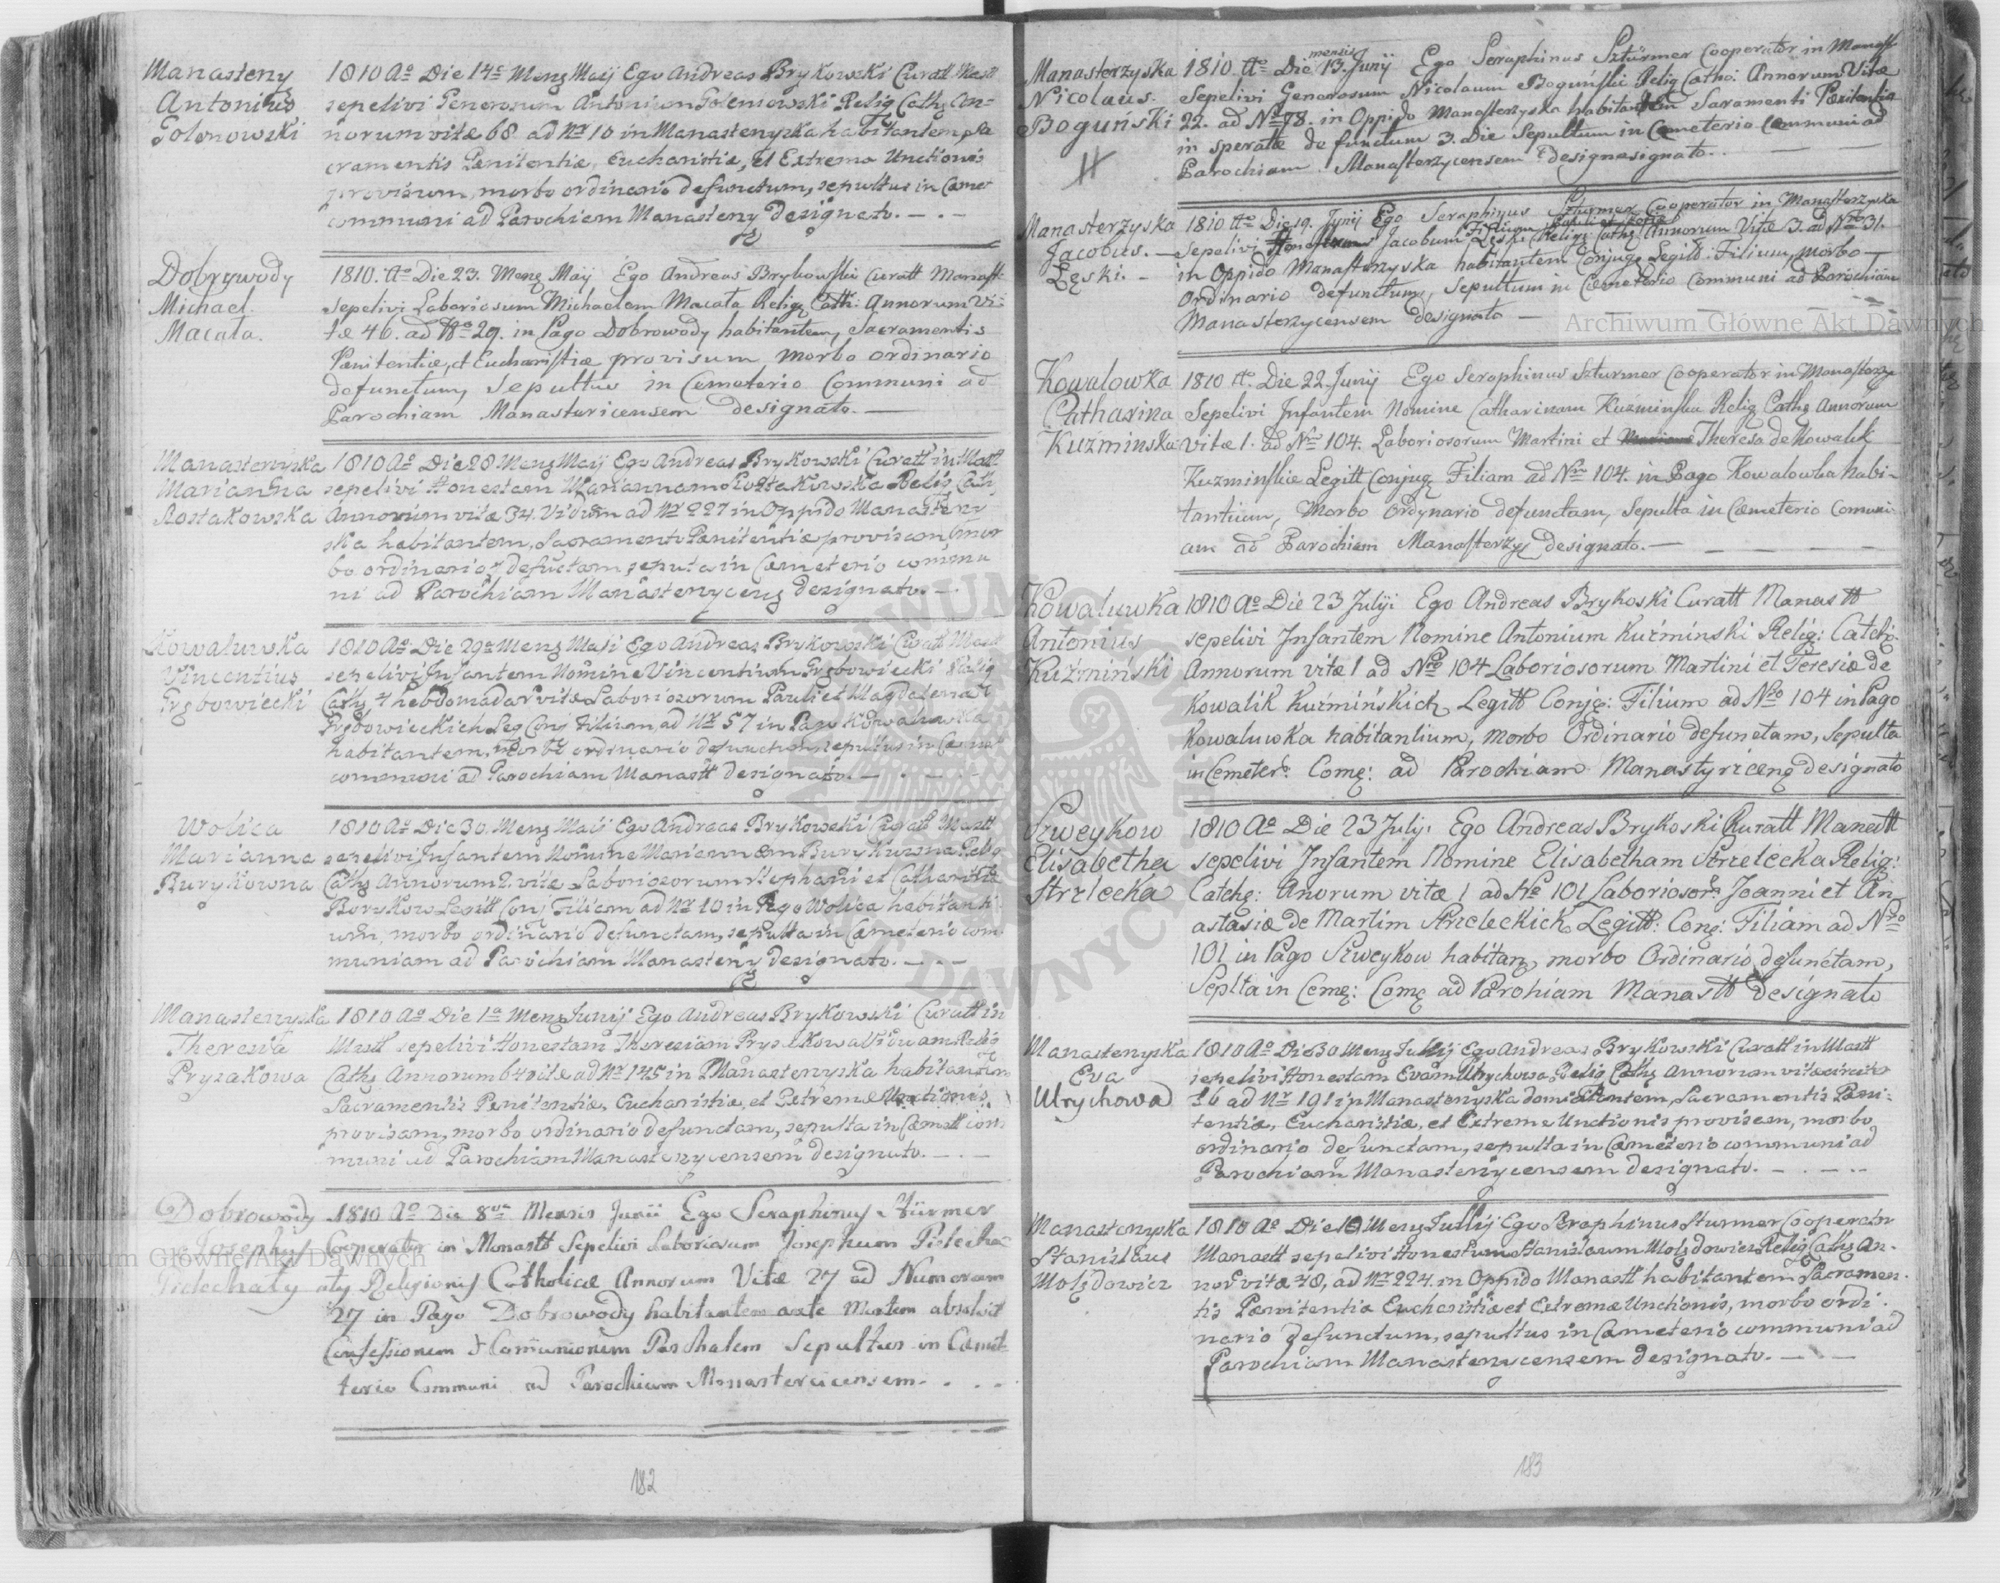 Manasteny
Antonius
Golonowski
1810 Ao Die 14e Meng Maij Ego Andreas Brykowski Curatt Mastt
sepelivi Generosum Antonium Golemowski Relig Cathg An=
norum vitæ 68 ad Nr 10 in Manastenyska habitantem, sa
cramentis Penitentiæ, Eucharistiæ, et Extrema Unctionis
provisum, morbo ordinario defunctum, sepultus in Cæme
communi ad Parochiem Manasteny designato. — . —
Dobrywody
Michael
Macała.
1810. Ao Die 23. Meng Maij Ego Andreas Brykowski Curatt Manast:
Sepelivi Laboriosum Michaelem Macała Relig Cath: Annorum Vi=
tæ 46. ad No 29. in Pago Dobrowody habitantem, Sacramentis
Pænitentiæ, et Eucharistiæ provisum morbo ordinario
defunctum, sepultus in Cemeterio Communi ad
Parochiam Manasturicensem designato. —
Manastenyska
Marianna
Rostakowska
1810 Ao Die 28 Meng Maij Ego Andreas Brykowski Curatt in Mastt
sepelivi Honestam Mariannam Rostakowska Relig Cath
Annorum vitæ 34. Viduam ad Nr 227 in Oppido Manasteny
ska habitantem, Sacramento Pænitentiæ provisam, mor
bo ordinario defuctam, seputa in Cæmeterio commu
ni ad Parochiam Manastenyceng designato. — .
Kowaluwka
Vincentius
Grębowiecki
1810 Ao Die 29a Meng Maii Ego Andreas Brykowski Curatt Mastt
sepelivi Infantem Nomine Vincentium Grębowiecki Relig
Cathg 4 hebdomadar vitæ Laboriosorum Pauli et Magdalena
Grębowieckich Leg Conj Filium, ad Nr 57 in Pago Kowaluwka
habitantem, morbo ordinario defunctum, sepultus in Cæmet
communi ad Parochiam Manastt designato. — . — . —
Wolica
Marianna
Burykowna
1810 Ao Die 30. Meng Maij Ego Andreas Brykowski Curatt Mastt
sepelivi Infantem Nomine Mariannam Burykowna Relig
Cathg Annorum 2. vitæ Laboriosorum Stephani et Catharinæ
Burykow Legitt Conj Filiam ad Nr 10 in Pago Wolica habitanti
um, morbo ordinario defunctam, sepulta in Cæmeterio com
muniam ad Parochiam Manasteny designato. — . —
Manastenyska
Theresia
Prysakowa
1810 Ao Die 1a Meng Junij Ego Andreas Brykowski Curatt in
Mastt sepelivi Honestam Theresiam Prysakowa Viduam Relig
Cathg Annorum 64 vitæ ad Nr 145 in Manastenyska habitantem
Sacramentis Penitentiæ, Eucharistiæ, et Extremæ Unctionis
provisam, morbo ordinario defunctam, sepulta in Cæmett com
muni ad Parochiam Manastenycensem designato. — . —
Dobrowody
Josephus
1810 Ao Die 8va Mensis Junii Ego Seraphinus Stürmer
Cooperator in Monastt Sepelivi Laboriosum Josephum
Religionis Catholicæ Annorum Vitæ 27 ad Numerum
27 in Pago Dobrowody habitantem ante Mortem absolvit
Confessionem & Comunionem Paschalem Sepultus in Cæmet-
terio Communi ad Parochiam Monastericensem. . . .
182
Manasterzyska
Nicolaus.
Boguński
1810. Ao Die mensis 13. Junij Ego Seraphinus Sztürmer Cooperator in Manast
Sepelivi Generosum Nicolaum Boguński Relig Catho: Annorum Vitæ
22. ad No 78. in Oppido Manasterzyska habitantem Saramenti Pænitentiæ
in speratæ defunctum 3. Die Sepultum in Cemeterio Communi ad
Parochiam Manasterzycensem designasignato. .
Manasterzyska
Jacobus.
Łęski.
1810 Ao Die 19. Junij Ego Seraphinus Szturmer Cooperator in Manasterzyska
Sepelivi Jacobum Filium Łęski Relig: Cathg Annorum Vitæ 3. ad Nro 31.
in Oppido Manasterzyska habitantem Conjug Legitt. Filium, morbo
Ordinario defunctum, Sepultum in Cæmeterio Communi ad Parochiam
Manasterzycensem designato —
Kowalowka
Catharina
Kuźminska
1810 Ao. Die 22. Junij Ego Seraphinus Szturmer Cooperator in Manasterzy
Sepelivi Infantem Nomine Catharinam Kuźminska Relig Cathg Annorum
vitæ 1. ad Nro 104. Laboriosorum Martini et Theresa de Kowalik
Kuźminskie Legitt Conjug Filiam ad Nro 104. in Pago Kowalowka habi-
tantium, Morbo Ordynario defunctam, Sepulta in Cæmeterio Comuni-
am ad Parochiem Manasterzy designato. —
Kowaluwka
Antonius
Kuźmiński
1810 Ao Die 23 Julij: Ego Andreas Brykoski Curatt Manastt
sepelivi Infantem Nomine Antonium Kuźminski Relig: Catch:
Annorum vitæ 1 ad Nro 104 Laboriosorum Martini et Teresiæ de
Kowalik Kuźmińskich Legitt Conjg: Filium ad Nro 104 in Pago
Kowaluwka habitantium, morbo Ordinario defunctam, Sepulta
in Cemeter: Comg: ad Parochiam Manastyriceng designato
Szweykow
Elisabetha
Strzelecka
1810 Ao Die 23 Julij: Ego Andreas Brykoski Kuratt Manastt
sepelivi Infantem Nomine Elisabetham Strzelecka Relig:
Catchg: Anorum vitæ 1 ad No 101 Laboriosor: Joanni et An
astasiæ de Martim Strzeleckich Legitt: Cong: Filiam ad Nro
101 in Pago Szweykow habitan, morbo Ordinario defunctam,
Seplta in Cemę: Comę ad Parohiam Manastt designato
Manastenyska
Eva
Ulrychowa
1810 Ao Die 30 Meng Julij Ego Andreas Brykowski Curatt in Mastt
sepelivi Honestam Evam Ulrychowa Relig Cathg Annorum vitæ
56 ad Nr 191 in Manastenyska domitantem, Sacramentis Pæni:
tentiæ, Eucharistiæ, et Extremæ Unctionis provisam, morbo
ordinario defunctam, sepulta in Cæmeterio communi ad
Parochiam Manastenycensem designato. — . — . —
Manastenyska
Stanislaus
Molzdowicz
1810 Ao Die 10 Meng Julij Ego Seraphinus Sturmer Cooper in
Manastt sepelivi Honestum Stanislaum Molzdowicz Relig Cathg An-
nor vitæ 48, ad Nr 224. in Oppido Manastt habitantem Sacramen-
tis Pænitentiæ Eucharistiæ et Extremæ Unctionis, morbo ordi-
nario defunctum, sepultus in Cæmeterio communi ad
Parochiam Manastenycensem designato. — . —
183
Archiwum Główne Akt Dawnych
Archiwum Główne Akt Dawnych